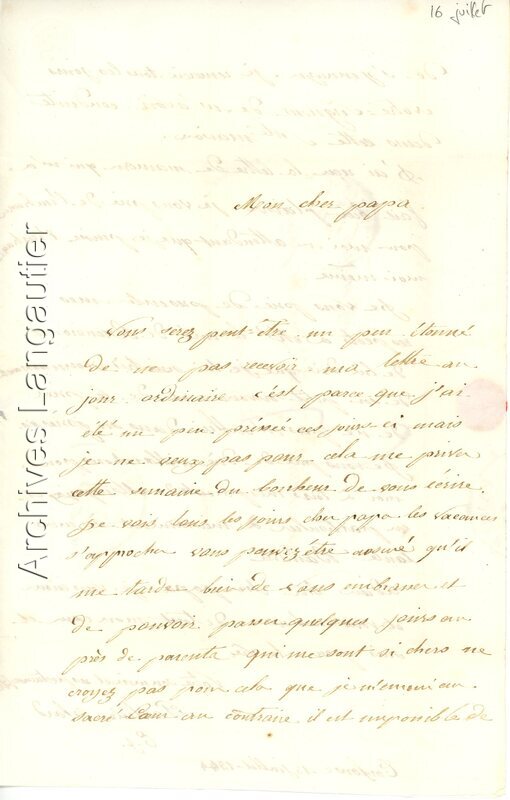 16 juillet
Mon cher papa.
Vous serez peut-être un peu étonné
de ne pas recevoir ma lettre au
jour ordinaire c'est parce que j'ai
été un peu préssée ces jours ci mais
je ne veux pas pour cela me priver
cette semaine du bonheur de vous écrire.
Je vois tous les jours cher papa les vacances
s'approcher vous pouvez être assuré qu'il
me tarde bien de vous embrasser et
de pouvoir passer quelques jours au
près de parents qui me sont si chers ne
croyez pas pour cela que je m'ennui au
sacré Cœur au contraire il est impossible de
Archives Langautier